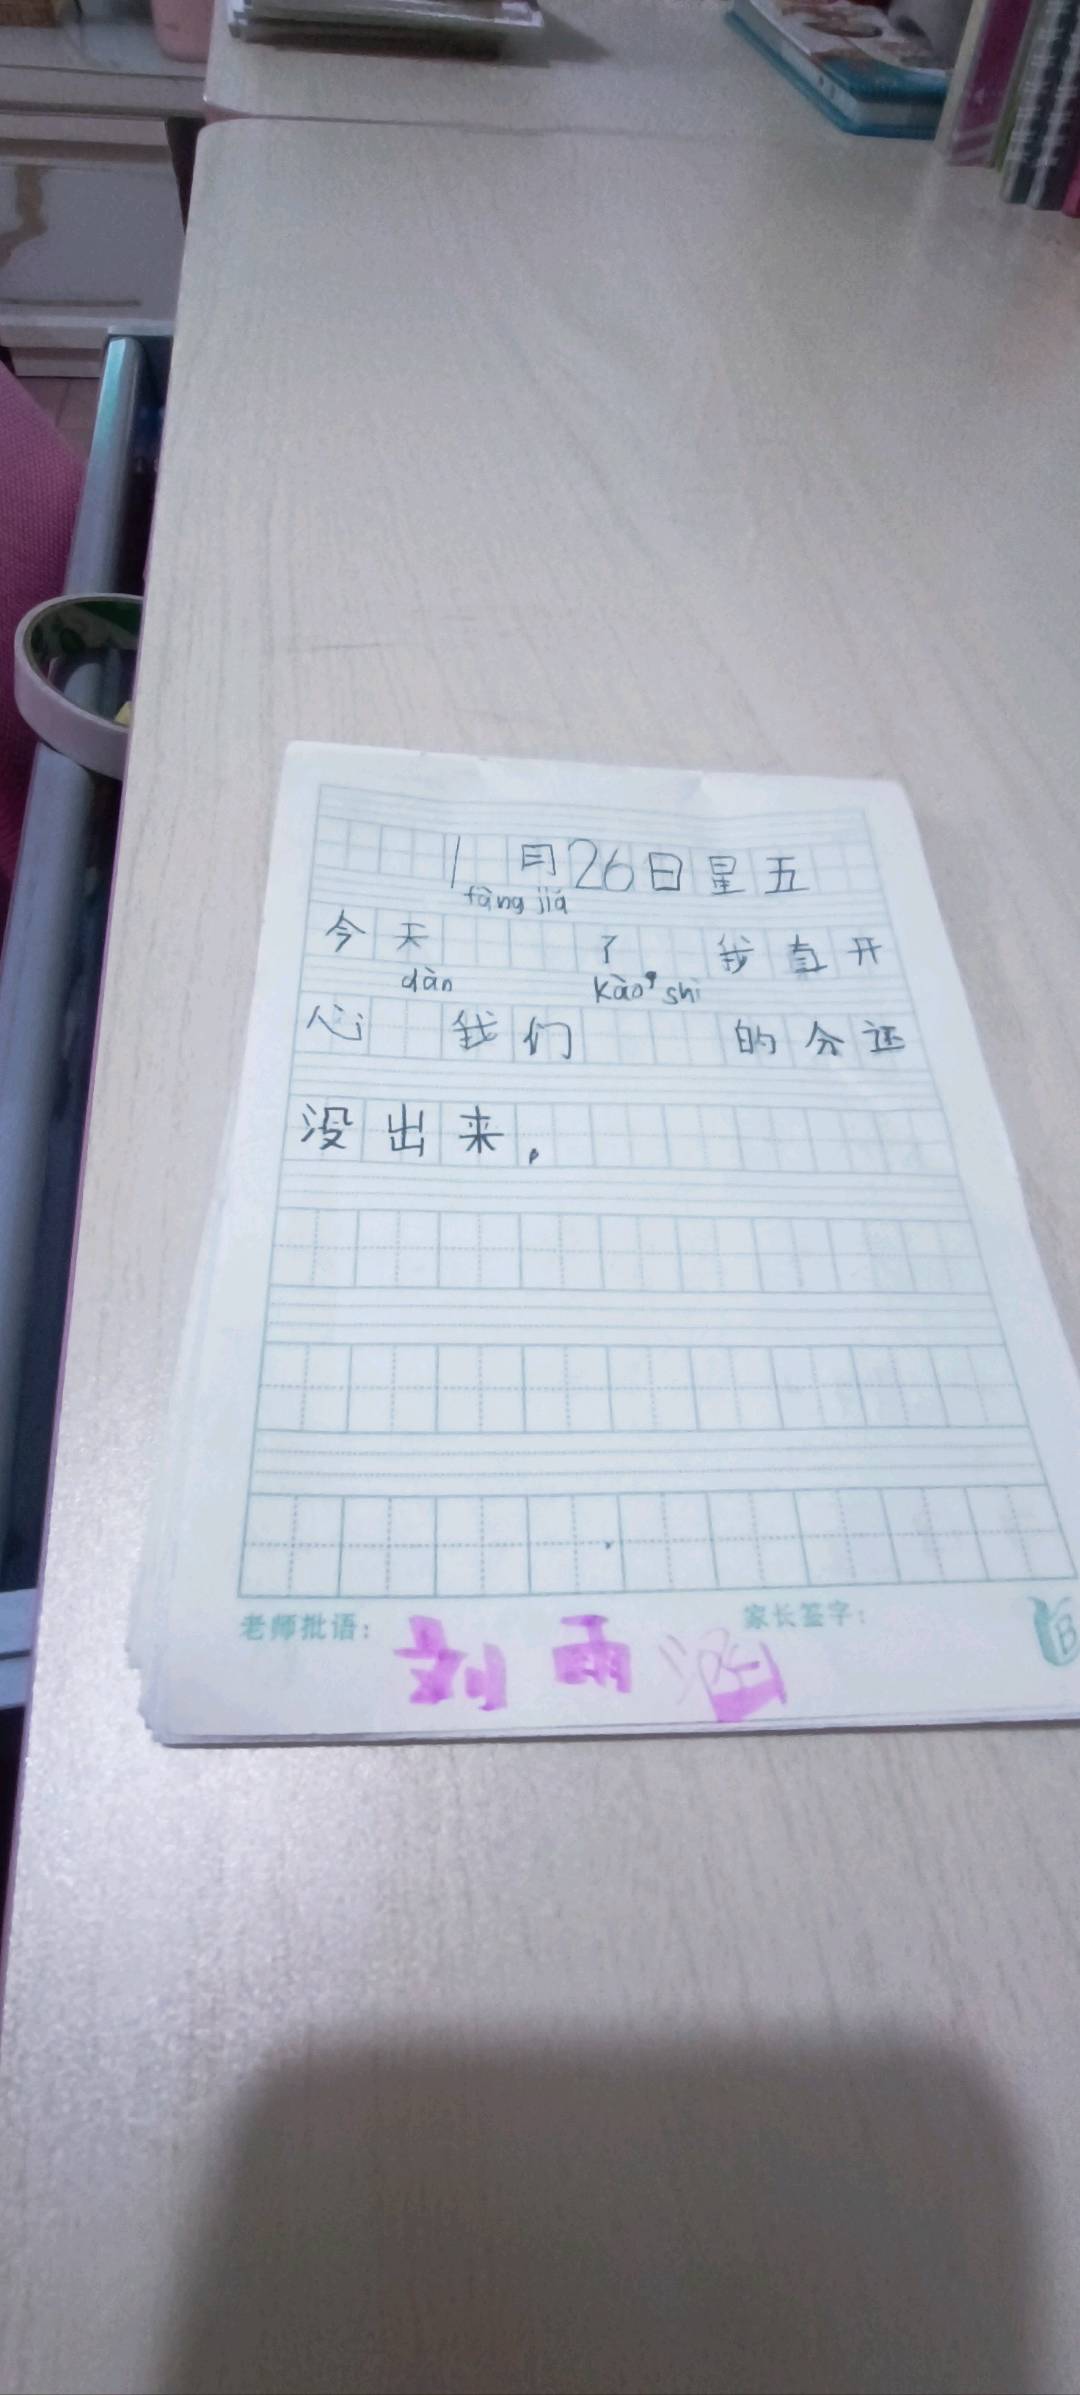 1月26日星五
fàng jiá
今天 了 我直开
dàn kào shì
心 我们 的分还
没出来.
老师批语: 家长签字:
刘雨涵
B